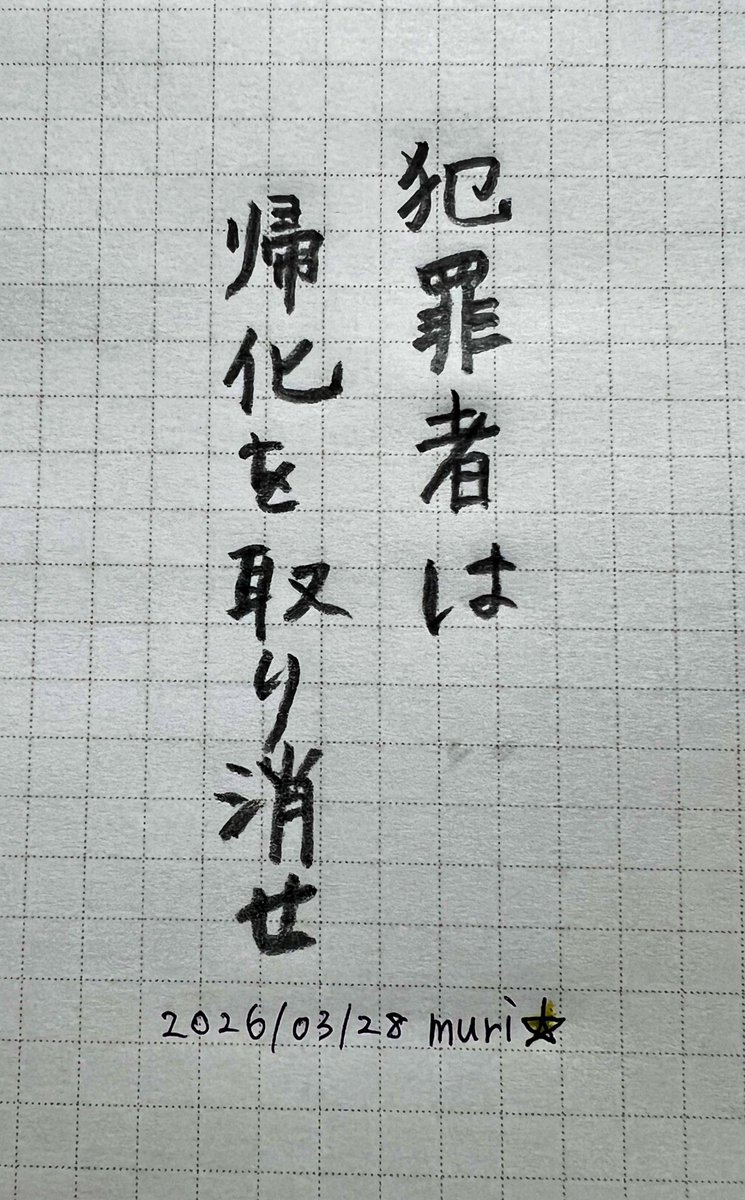 犯罪者は
帰化を取り消せ
2026/03/28 muri☆